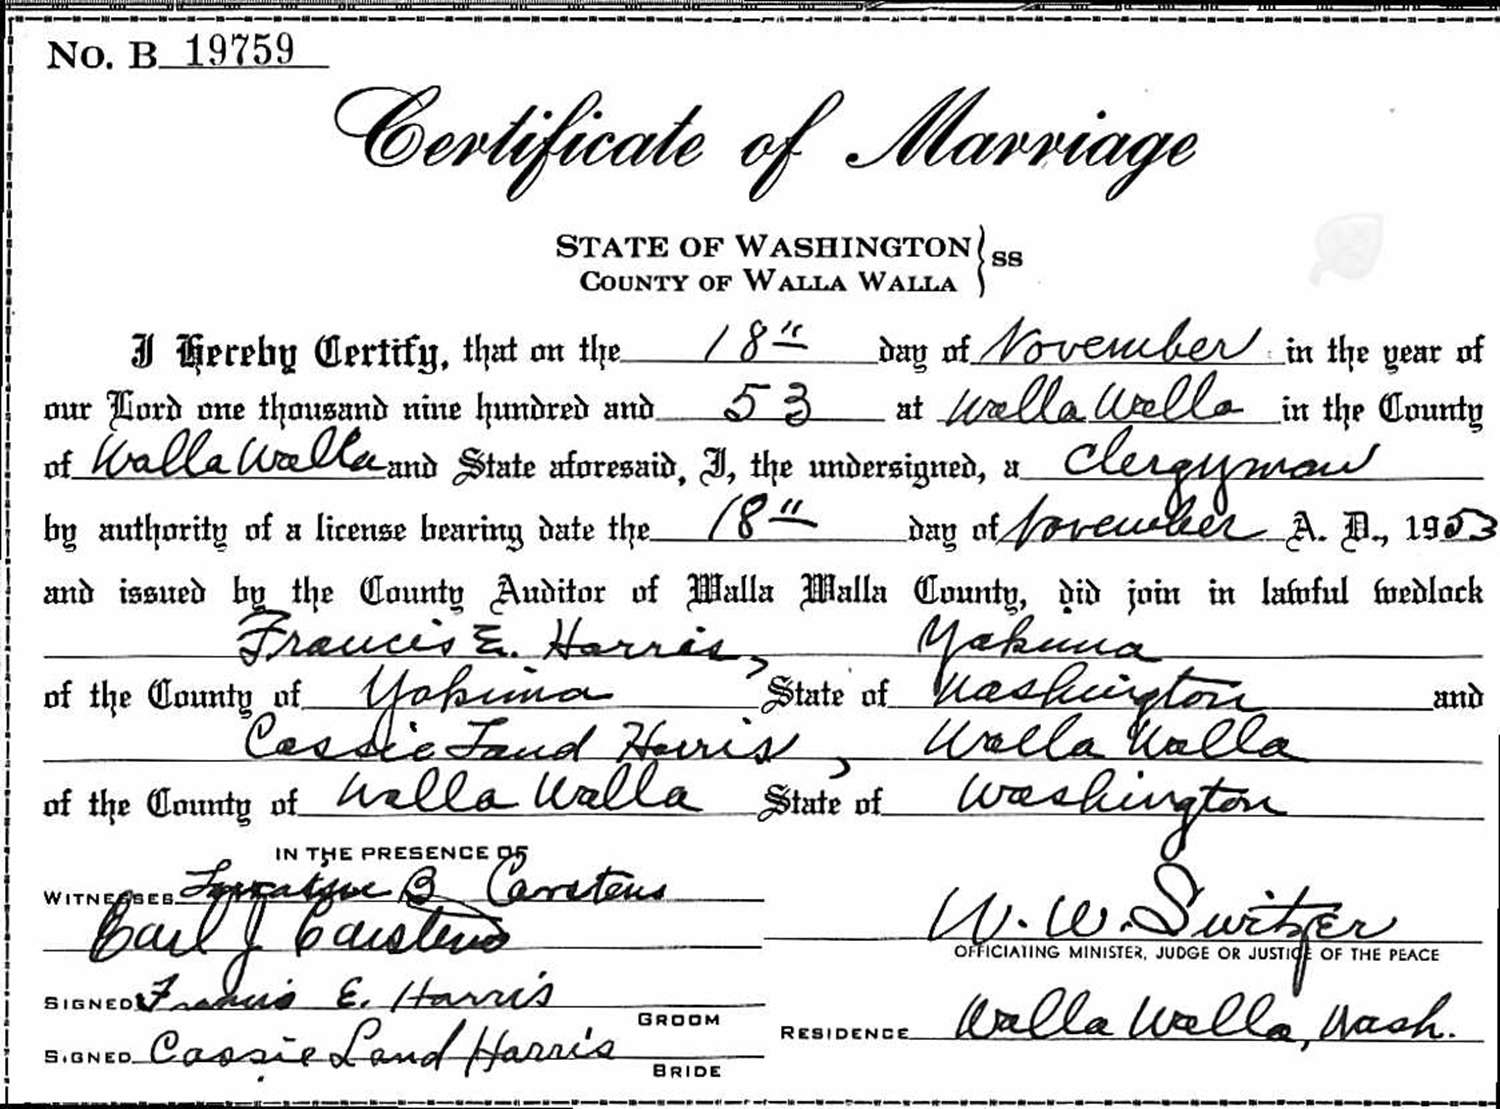 No. B 19759
Certificate of Marriage
STATE OF WASHINGTON } ss
COUNTY OF WALLA WALLA
I Hereby Certify, that on the 18" day of November in the year of
our Lord one thousand nine hundred and 53 at Walla Walla in the County
of Walla Walla and State aforesaid, I, the undersigned, a Clergyman
by authority of a license bearing date the 18" day of November A. D., 1953
and issued by the County Auditor of Walla Walla County, did join in lawful wedlock
Francis E. Harris, Yakima
of the County of Yakima State of Washington and
Cassie Land Harris, Walla Walla
of the County of Walla Walla State of Washington
IN THE PRESENCE OF
WITNESSES B Carstens
Carl J Carstens
W. W. Switzer
OFFICIATING MINISTER, JUDGE OR JUSTICE OF THE PEACE
SIGNED Francis E. Harris
GROOM
RESIDENCE Walla Walla, Wash.
SIGNED Cassie Land Harris
BRIDE